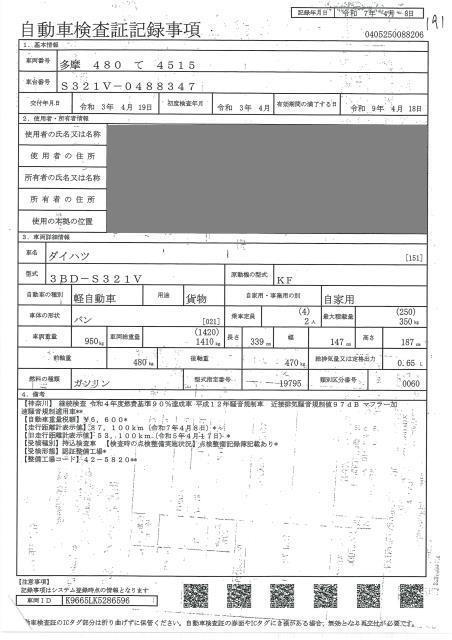 記録年月日 令和 7年 4月 8日
191
自動車検査証記録事項
0405250088206
1. 基本情報
車両番号 多摩 480 て 4515
車台番号 S321V-0488347
交付年月日 令和 3年 4月 19日 初度検査年月 令和 3年 4月 有効期間の満了する日 令和 9年 4月 18日
2. 使用者・所有者情報
使用者の氏名又は名称
使用者の住所
所有者の氏名又は名称
所有者の住所
使用の本拠の位置
3. 車両詳細情報
車名 ダイハツ [151]
型式 3BD-S321V 原動機の型式 KF
自動車の種別 軽自動車 用途 貨物 自家用・事業用の別 自家用
車体の形状 バン [021] 乗車定員 (4) 2人 最大積載量 (250) 350kg
車両重量 950kg 車両総重量 (1420) 1410kg 長さ 339cm 幅 147cm 高さ 187cm
前軸重 480kg 後軸重 470kg 総排気量又は定格出力 0.65 L
燃料の種類 ガソリン 型式指定番号 19795 類別区分番号 0060
4. 備考
【神奈川】 継続検査 令和4年度燃費基準90%達成車 平成12年騒音規制車 近接排気騒音規制値97dB マフラー加
速騒音規制適用車**
【自動車重量税額】¥6,600*
【走行距離計表示値】87,100km(令和7年4月8日)*
【旧走行距離計表示値】53,100km(令和5年4月17日)*
【受検種別】持込検査 【検査時の点検整備実施状況】点検整備記録簿記載あり*
【受検形態】認証整備工場*
【整備工場コード】42-5820**
【注意事項】
記録事項はシステム登録時点の情報となります
車両ID K9665LK5286596
自動車検査証のICタグ部分は折り曲げずに保管ください。自動車検査証の券面やICタグに き損がある場合、無効となる再交付が必要です。